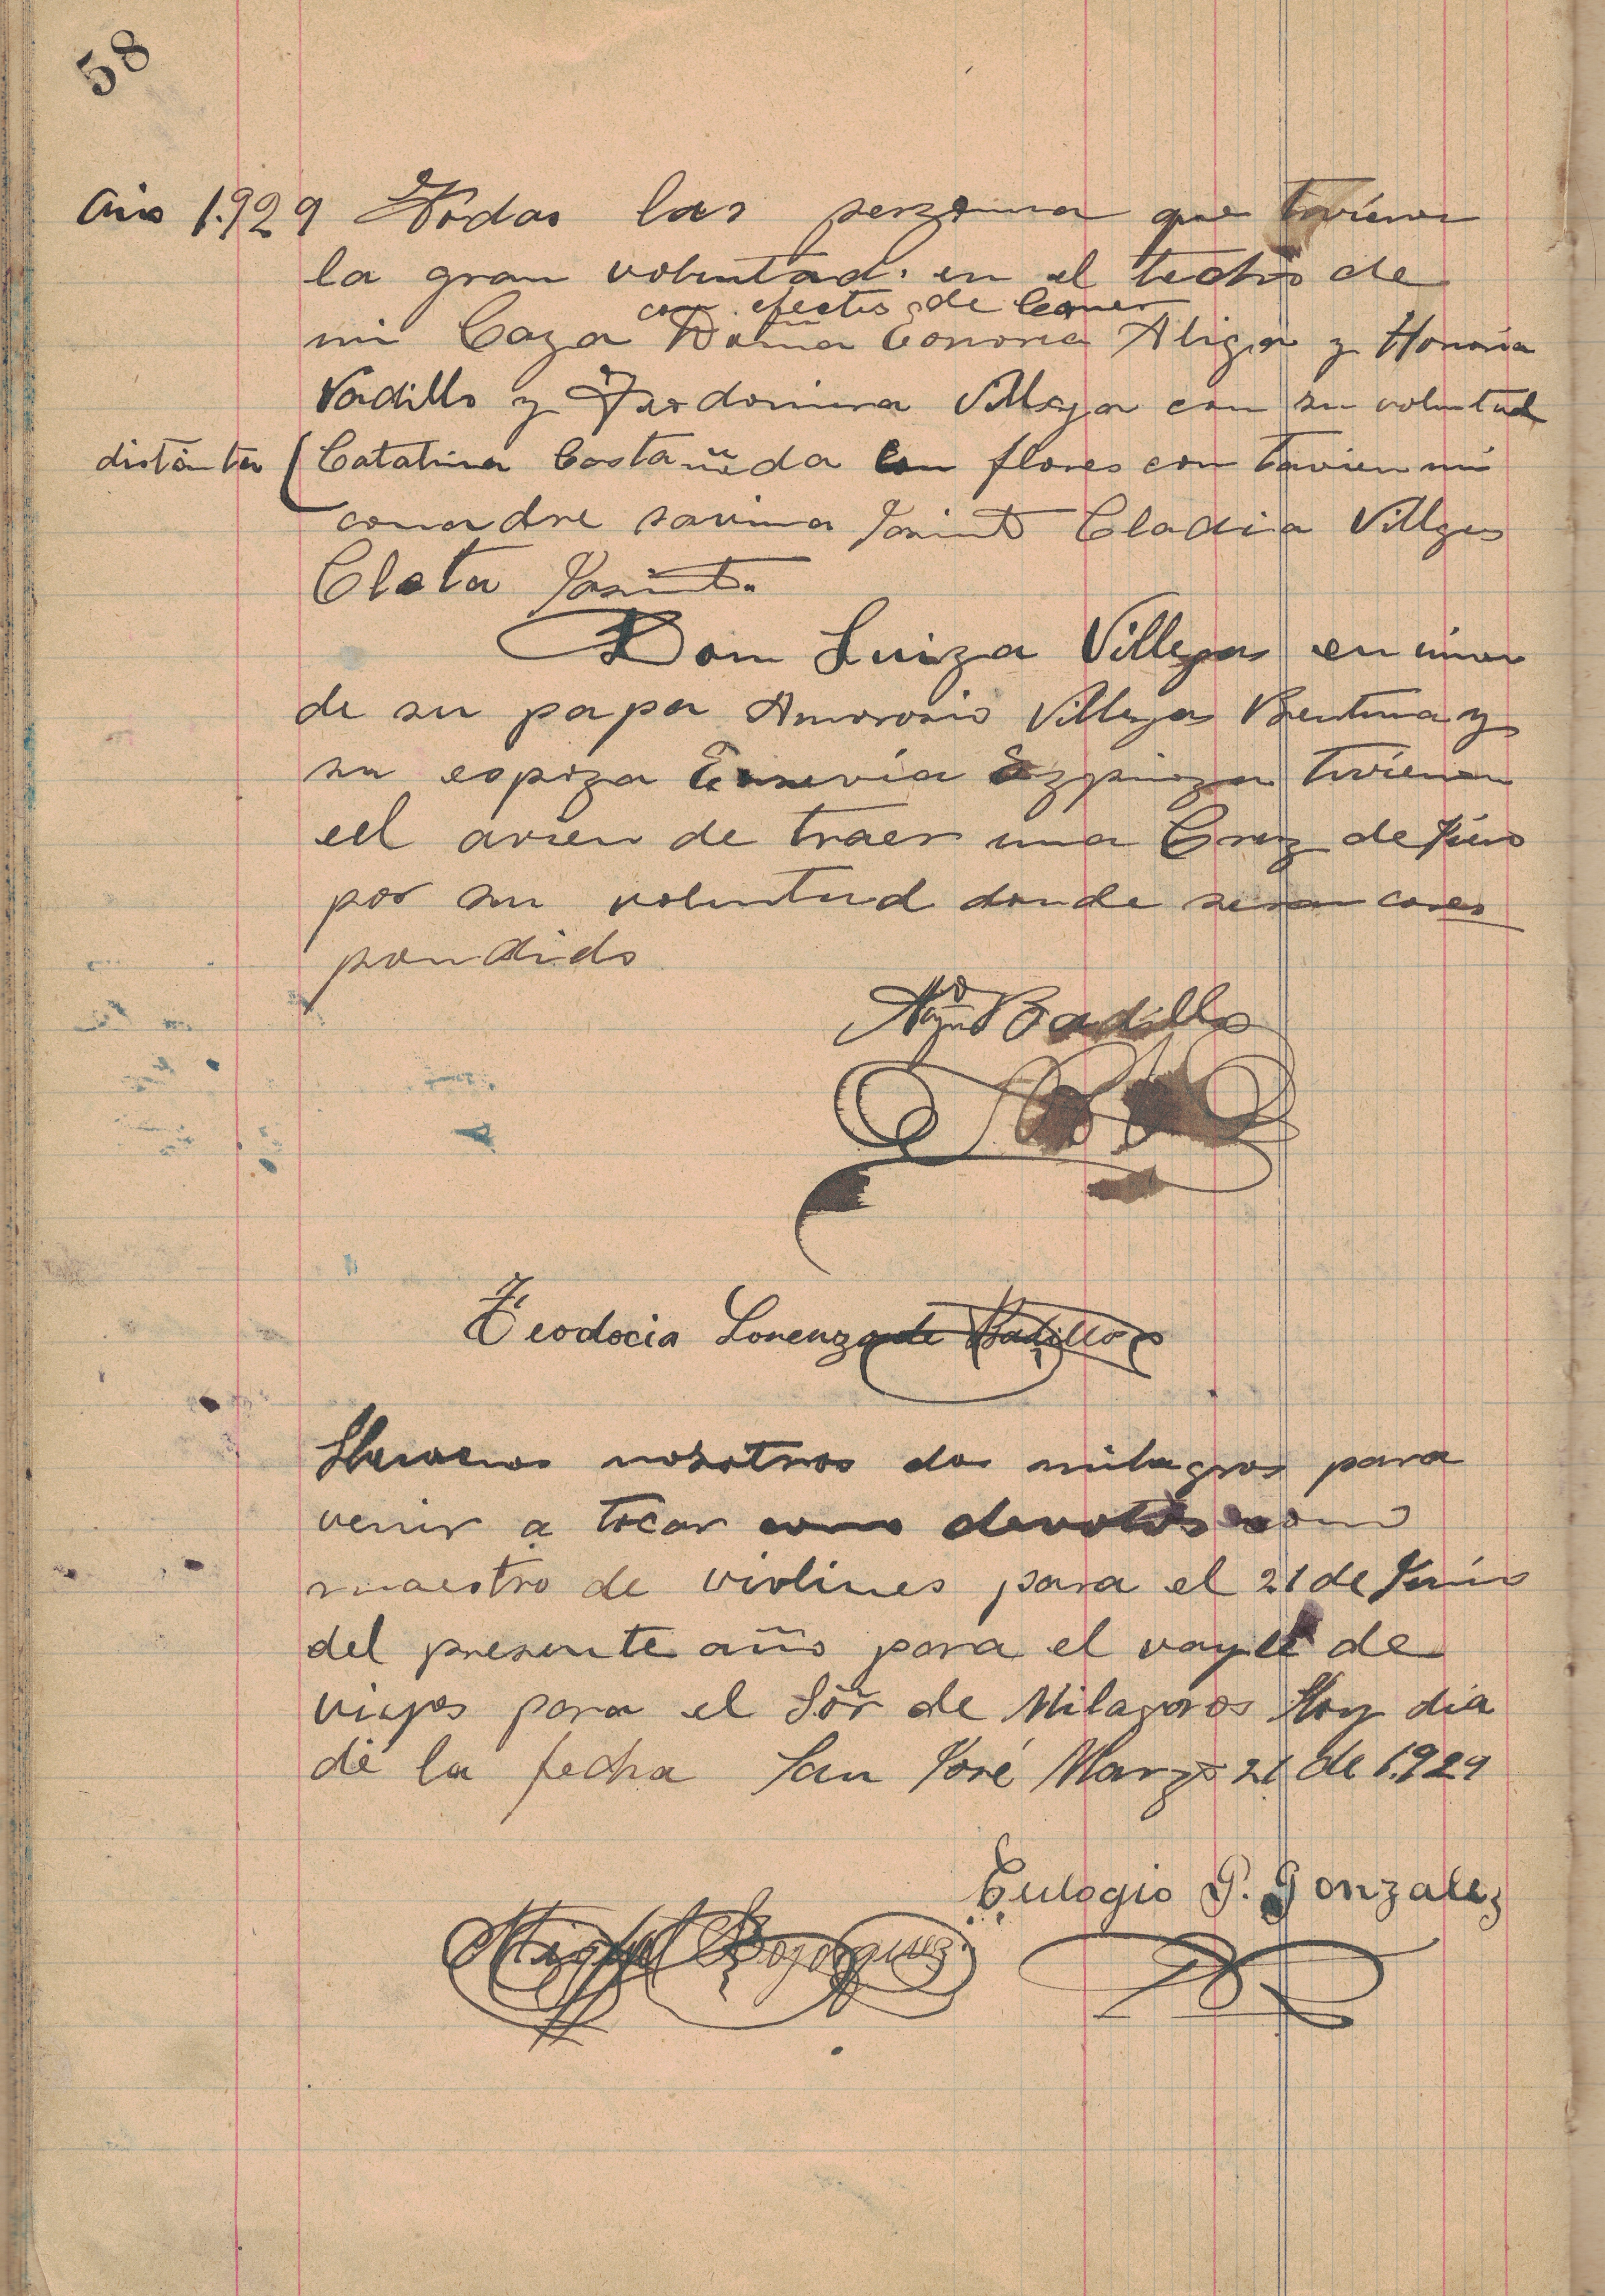 58
Año 1.929 Todas las perzonna que tuvieron
la gran voluntad. en el techo de
con efectos de Comer
mi Caza Doña Honoria Aliga y Honoria
Vadillo y Fredomina Villega con su voluntad
distanta (Catalina Castañeda con flores con tavien mi
comadre savina Jasinto Cladia Villges
Cleta Jasinto.
Dom Luiza Villegas en
de su papa Amorosio Villegas Bentura y
su espoza Eusevia Ezpinoza tuvieron
eel avien de traer una Cruz de Pino
por su voluntad donde seran cores
pondido
Badillo
Teodocia Lorenzo de Badillo
Llevamos nosotros dos milagros para
venir a tocar como devotos como
maestro de violines para el 21 de Junio
del presente año para el vayle de
viejos para el Sõr de Milagros Hoy dia
de la fecha San José Marzo 21 de 1.929
Eulogio P. Gonzalez
Miguel Bojorquez.